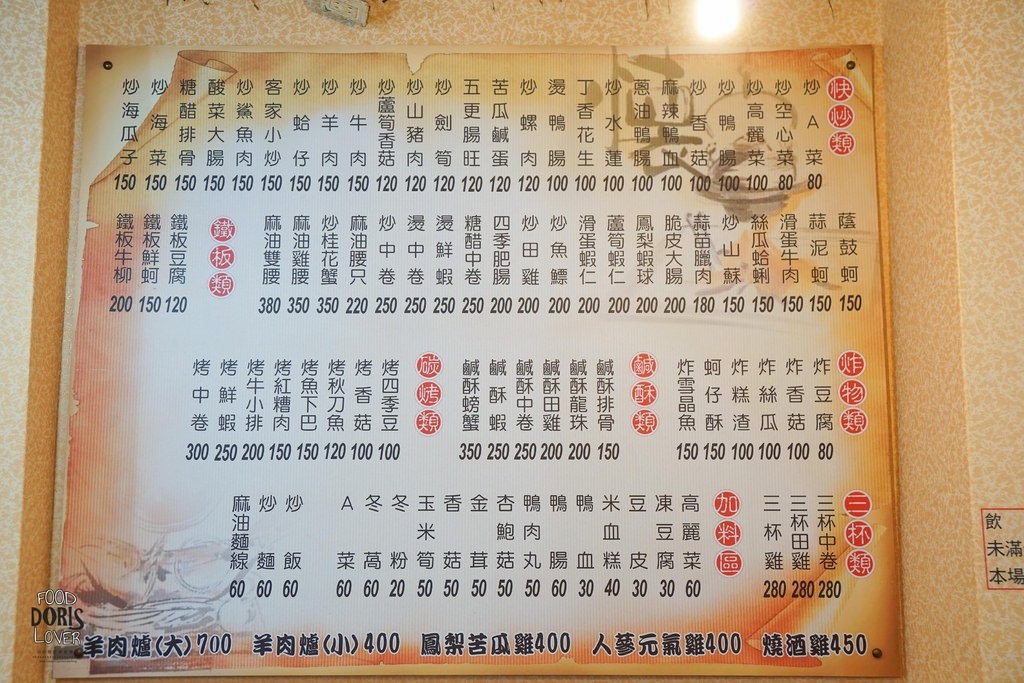 快炒類
炒A菜 80
炒空心菜 80
炒高麗菜 100
炒鴨腸 100
炒香菇 100
麻辣鴨血 100
蔥油鴨腸 100
炒水蓮 100
丁香花生 100
燙鴨腸 100
炒螺肉 120
苦瓜鹹蛋 120
五更腸旺 120
炒劍筍 120
炒山豬肉 120
炒蘆筍香菇 120
炒牛肉 150
炒羊肉 150
炒蛤仔 150
客家小炒 150
炒鯊魚肉 150
酸菜大腸 150
糖醋排骨 150
炒海菜 150
炒海瓜子 150
蔭鼓蚵 150
蒜泥蚵 150
滑蛋牛肉 150
絲瓜蛤蜊 150
炒山蘇 150
蒜苗臘肉 180
脆皮大腸 200
鳳梨蝦球 200
蘆筍蝦仁 200
滑蛋蝦仁 200
炒魚鰾 200
炒田雞 200
四季肥腸 200
糖醋中卷 250
燙鮮蝦 250
燙中卷 250
炒中卷 250
麻油腰只 220
炒桂花蟹 350
麻油雞腰 350
麻油雙腰 380
鐵板類
鐵板豆腐 120
鐵板鮮蚵 150
鐵板牛柳 200
炸物類
炸豆腐 80
炸香菇 100
炸絲瓜 100
炸糕渣 100
蚵仔酥 150
炸雪晶魚 150
鹹酥類
鹹酥排骨 150
鹹酥龍珠 200
鹹酥田雞 200
鹹酥中卷 250
鹹酥蝦 250
鹹酥螃蟹 350
碳烤類
烤四季豆 100
烤香菇 100
烤秋刀魚 120
烤魚下巴 150
烤紅糟肉 150
烤牛小排 200
烤鮮蝦 250
烤中卷 300
三杯類
三杯中卷 280
三杯田雞 280
三杯雞 280
加料區
高麗菜 60
凍豆腐 30
豆皮 30
米血糕 40
鴨血 30
鴨腸 60
鴨肉丸 50
杏鮑菇 50
金茸 50
香菇 50
玉米筍 50
冬粉 20
冬蒿 60
A菜 60
炒飯 60
炒麵 60
麻油麵線 60
羊肉爐(大)700 羊肉爐(小)400 鳳梨苦瓜雞400 人蔘元氣雞400 燒酒雞450
飲
未滿
本場
FOOD
DORIS
LOVER